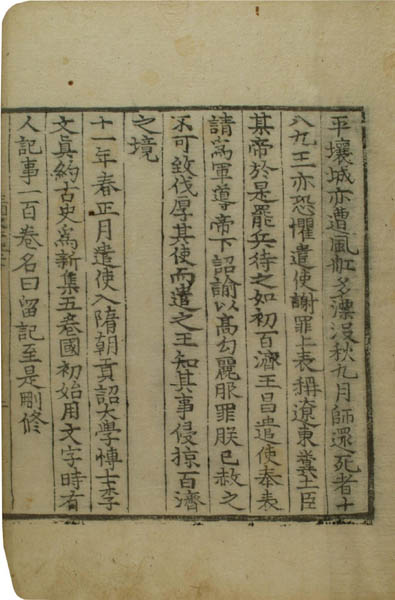 平壤城亦遭風舡多漂没秋九月師還死者十
八九王亦恐懼遣使謝罪上表稱遼東糞土臣
某帝於是罷兵待之如初百濟王昌遣使奉表
請爲軍導帝下詔諭以高勾麗服罪朕已赦之
不可致伐厚其使而遣之王知其事侵掠百濟
之境
十一年春正月遣使入隋朝貢詔大學博士李
文眞約古史爲新集五卷國初始用文字時有
人記事一百卷名曰留記至是刪修